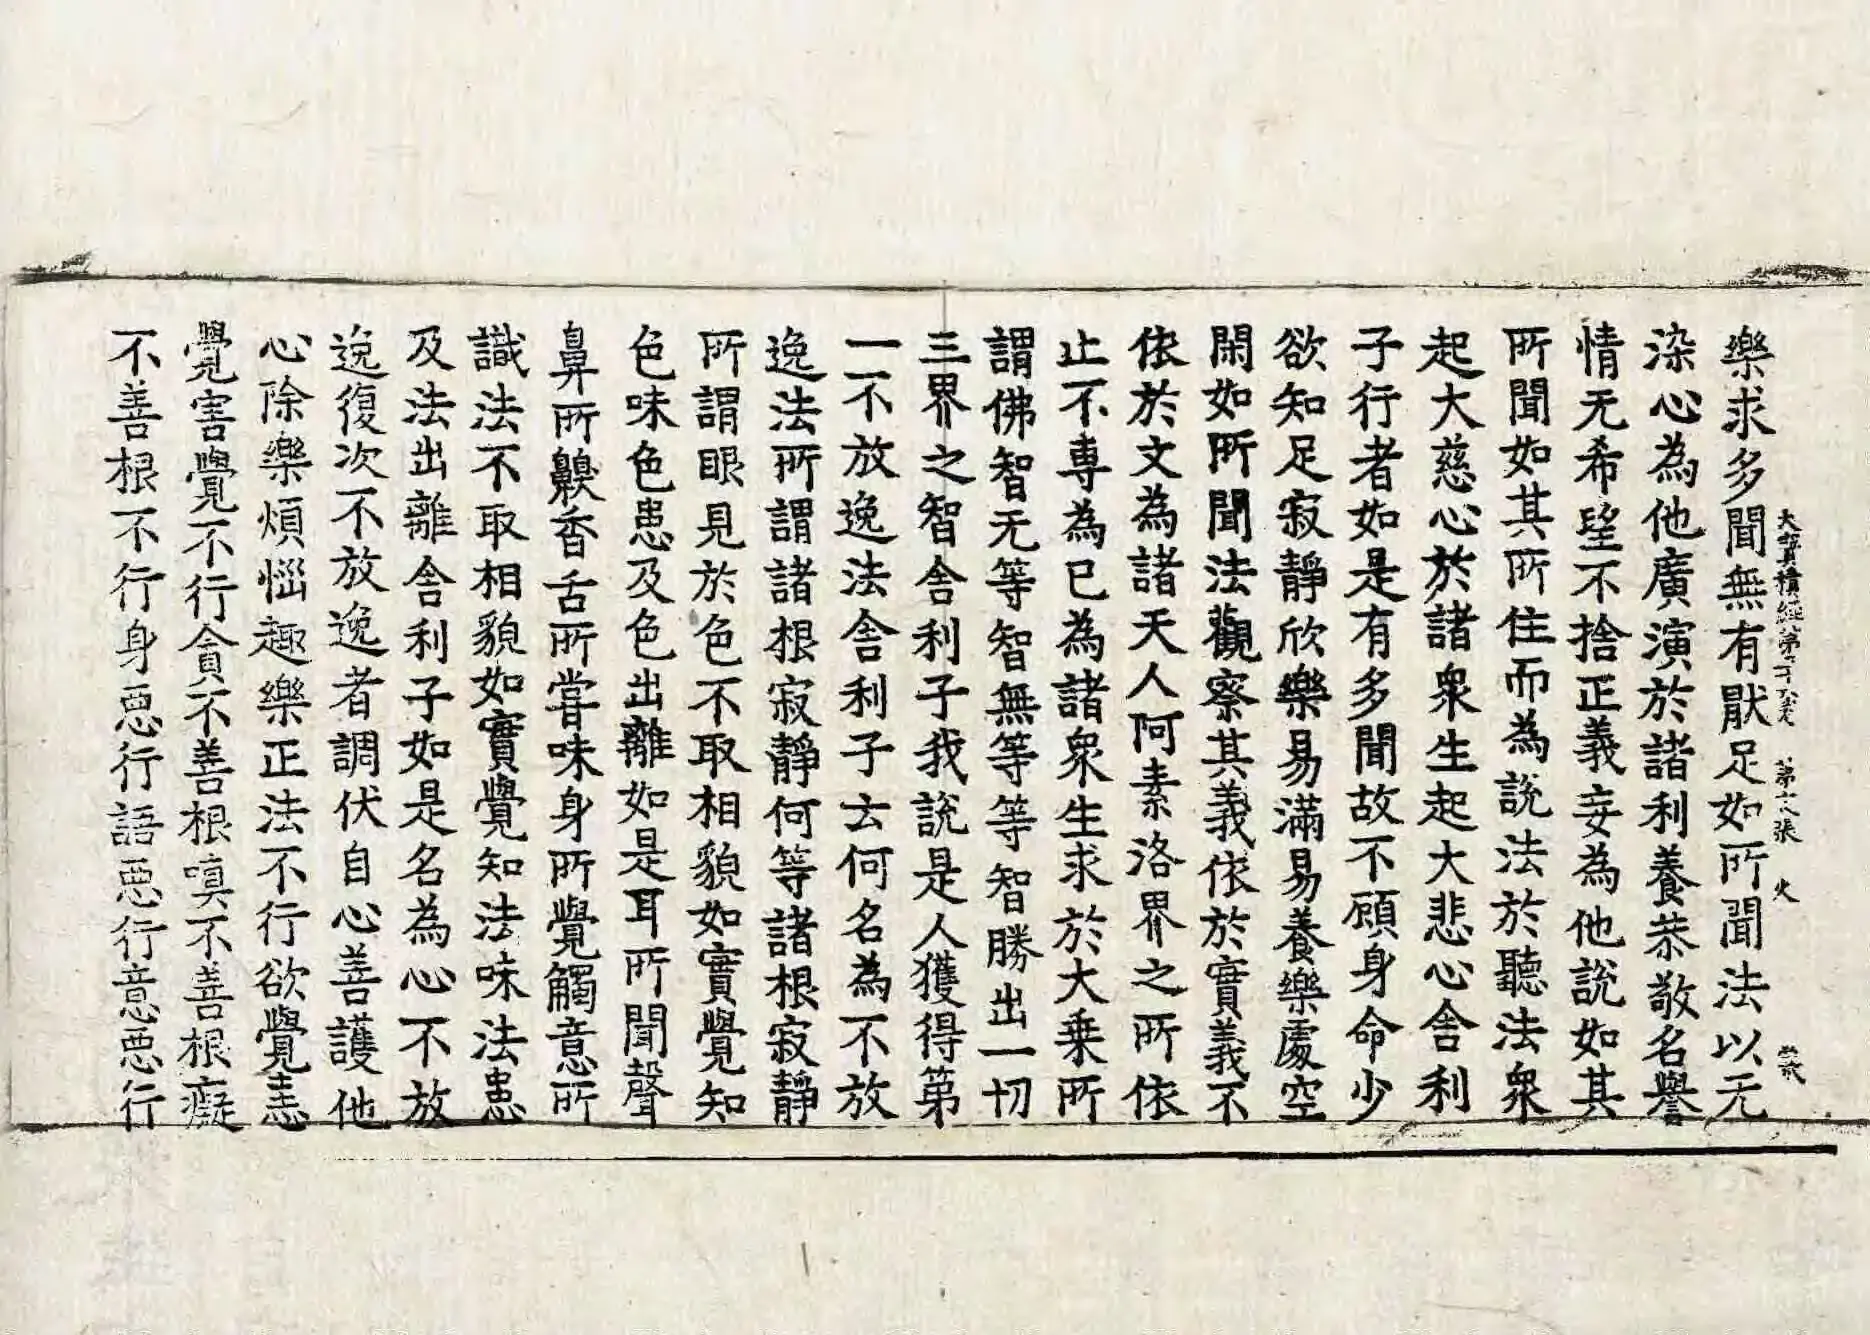 大寶積經第 第 張 火
樂求多聞無有猒足如所聞法以无
染心為他廣演於諸利養恭敬名譽
情无希望不捨正義妄為他說如其
所聞如其所住而為說法於聽法衆
起大慈心於諸衆生起大悲心舍利
子行者如是有多聞故不顧身命少
欲知足寂靜欣樂易滿易養樂處空
閑如所聞法觀察其義依於實義不
依於文為諸天人阿素洛界之所依
止不專為已為諸衆生求於大乘所
謂佛智无等智無等等智勝出一切
三界之智舍利子我說是人獲得第
一不放逸法舍利子云何名為不放
逸法所謂諸根寂靜何等諸根寂靜
所謂眼見於色不取相貌如實覺知
色味色患及色出離如是耳所聞聲
鼻所齅香舌所甞味身所覺觸意所
識法不取相貌如實覺知法味法患
及法出離舍利子如是名為心不放
逸復次不放逸者調伏自心善護他
心除樂煩惱趣樂正法不行欲覺恚
覺害覺不行貪不善根嗔不善根癡
不善根不行身惡行語惡行意惡行